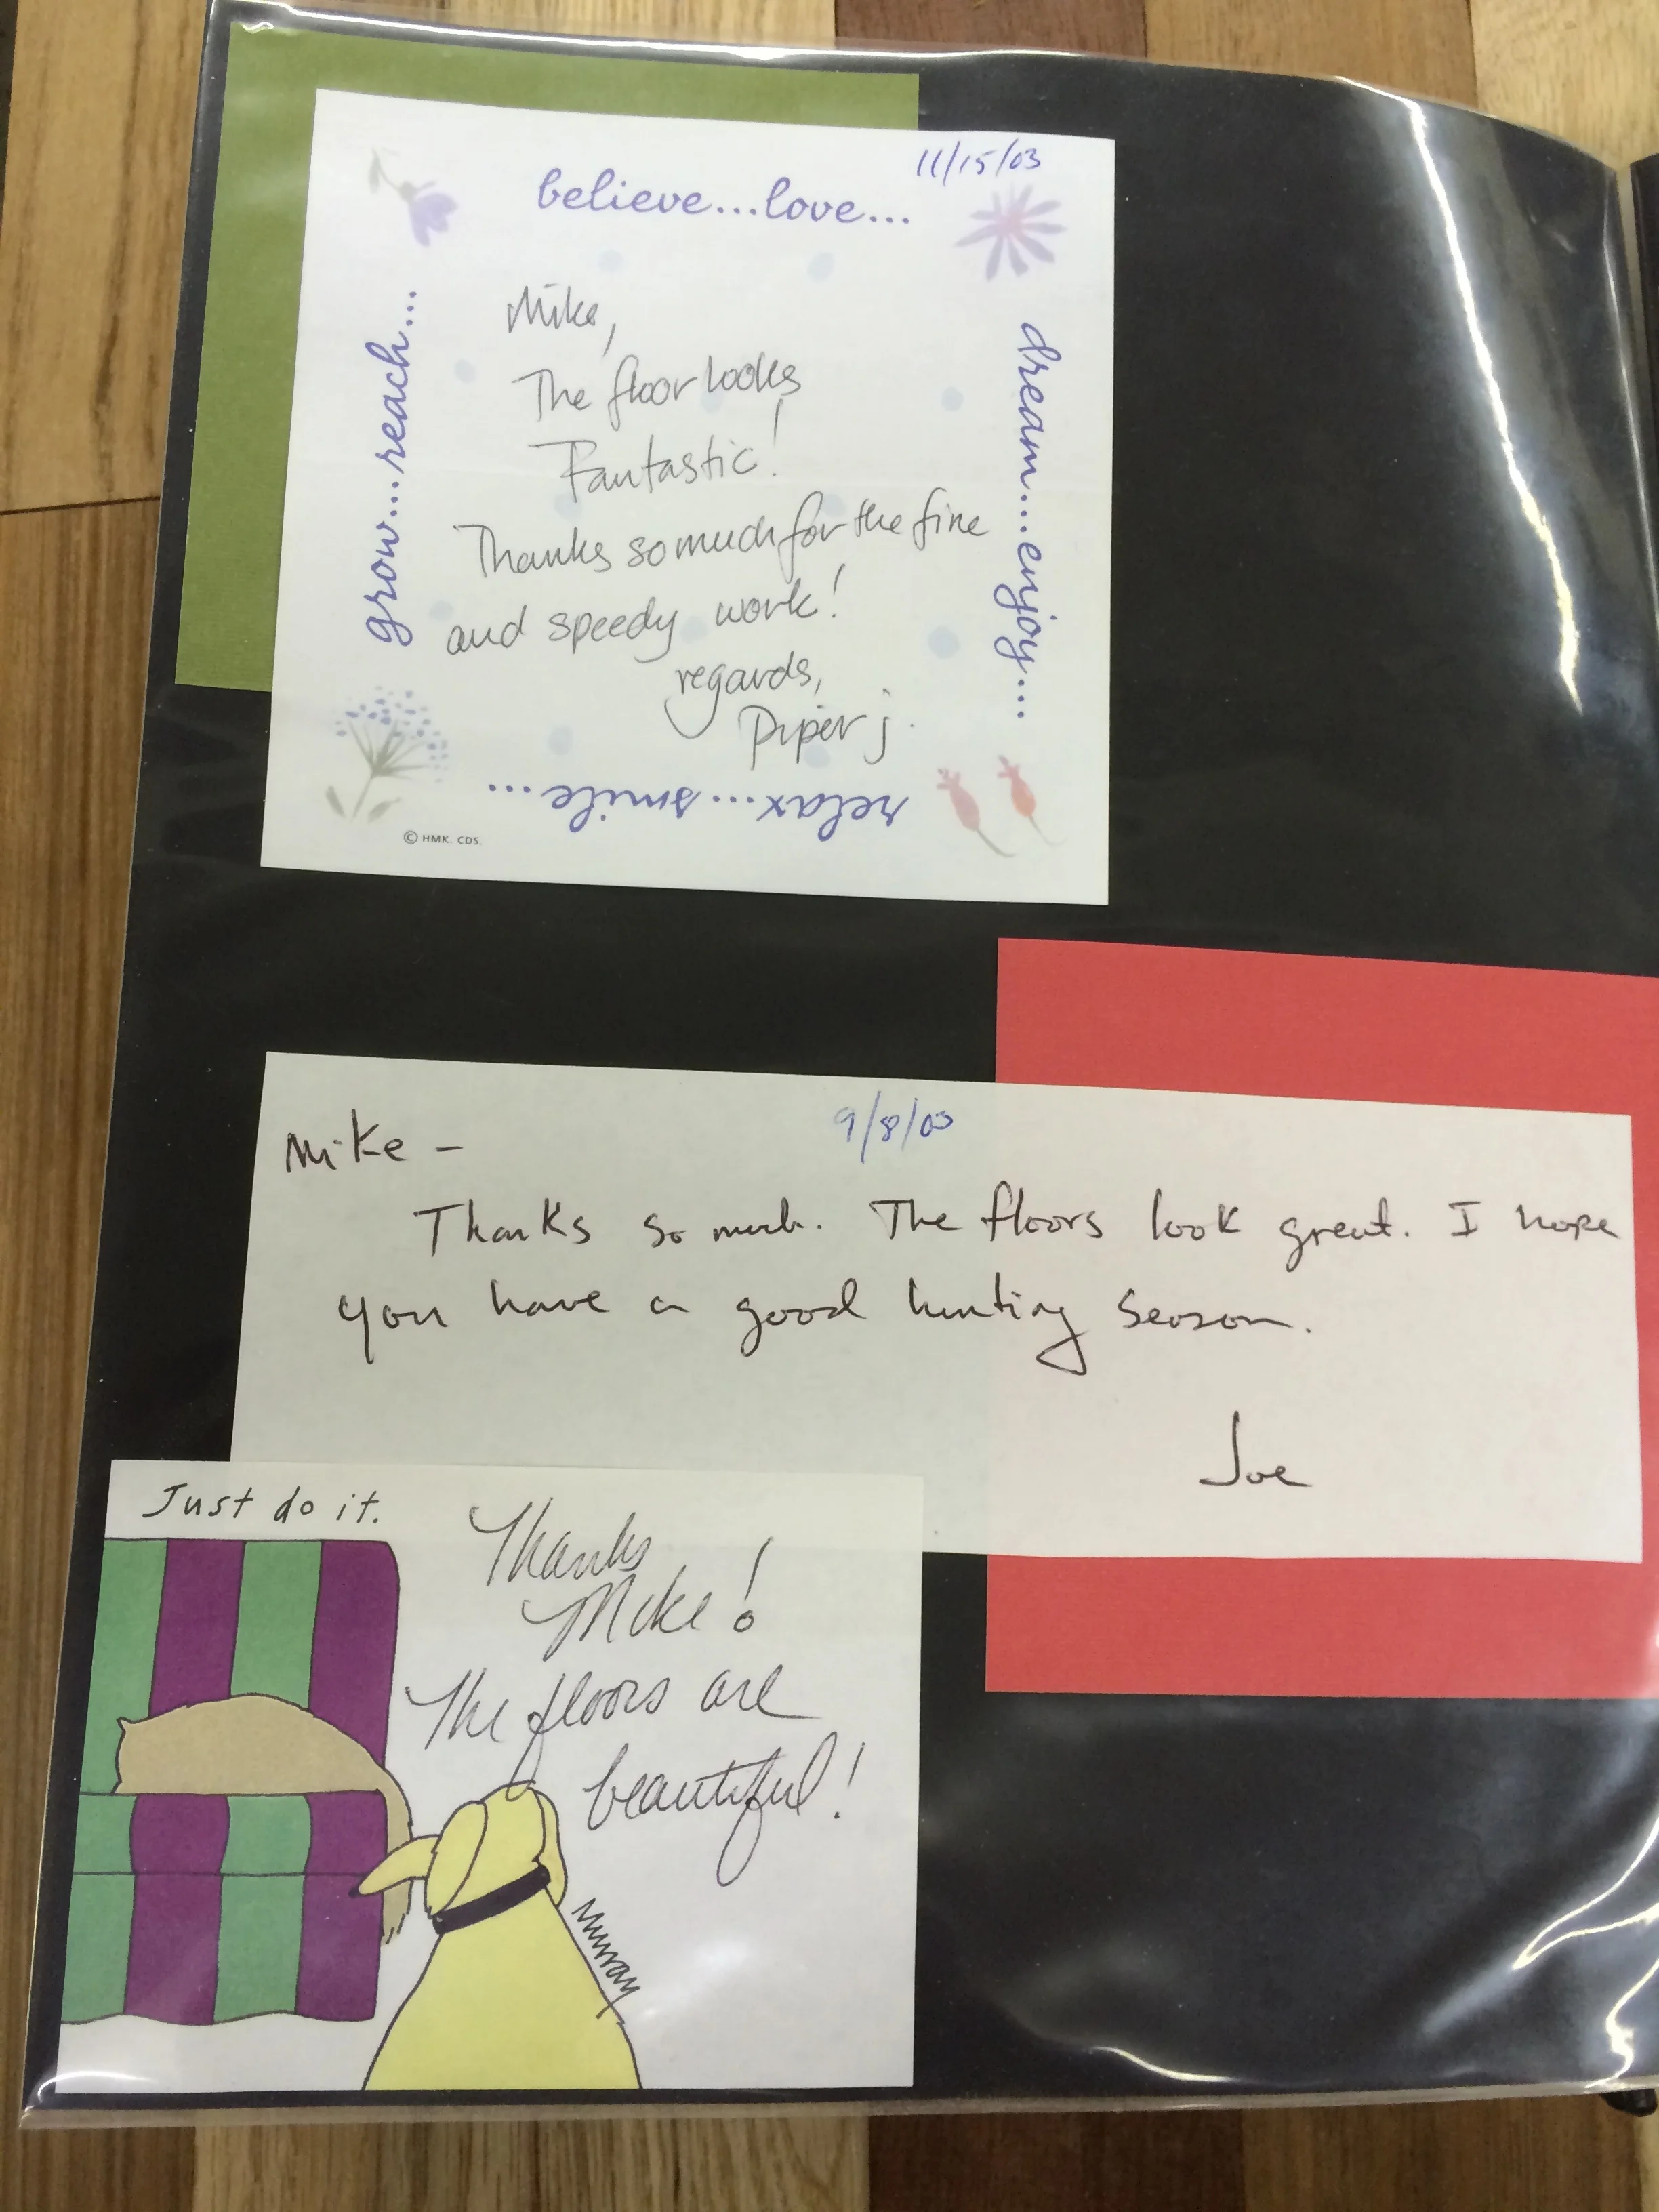 11/15/03
believe...love...
dream...enjoy...
relax...smile...
grow...reach...
Mike,
The floor looks
Fantastic!
Thanks so much for the fine
and speedy work!
regards,
Piper j.
© HMK. CDS.
9/8/03
Mike –
Thanks so much. The floors look great. I hope
you have a good hunting season.
Joe
Just do it.
Thanks
Mike!
The floors are
beautiful!
Murray